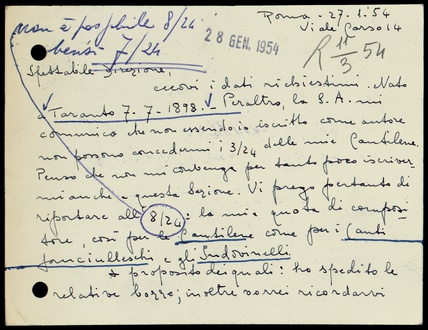 non è possibile 8/24
bensì 7/24
Roma - 27.1.54
Viale Carso 14
28 GEN. 1954
R 11/3 54
Spettabile Direzione,
eccovi i dati richiestimi. Nato
a Taranto 7-7-1898. Peraltro, la S.A. mi
comunica che non essendo io iscritto come autore
non possono concedermi i 3/24 delle mie Cantilene.
Penso che non mi convenga per tanto poco iscriver
mi anche a questa Sezione. Vi prego pertanto di
riportare all' 8/24: la mia quota di composi-
tore, così per le Cantilene come per i Canti
fanciulleschi e gli Indovinelli.
A proposito dei quali: ho spedito le
relative bozze; inoltre vorrei ricordarvi